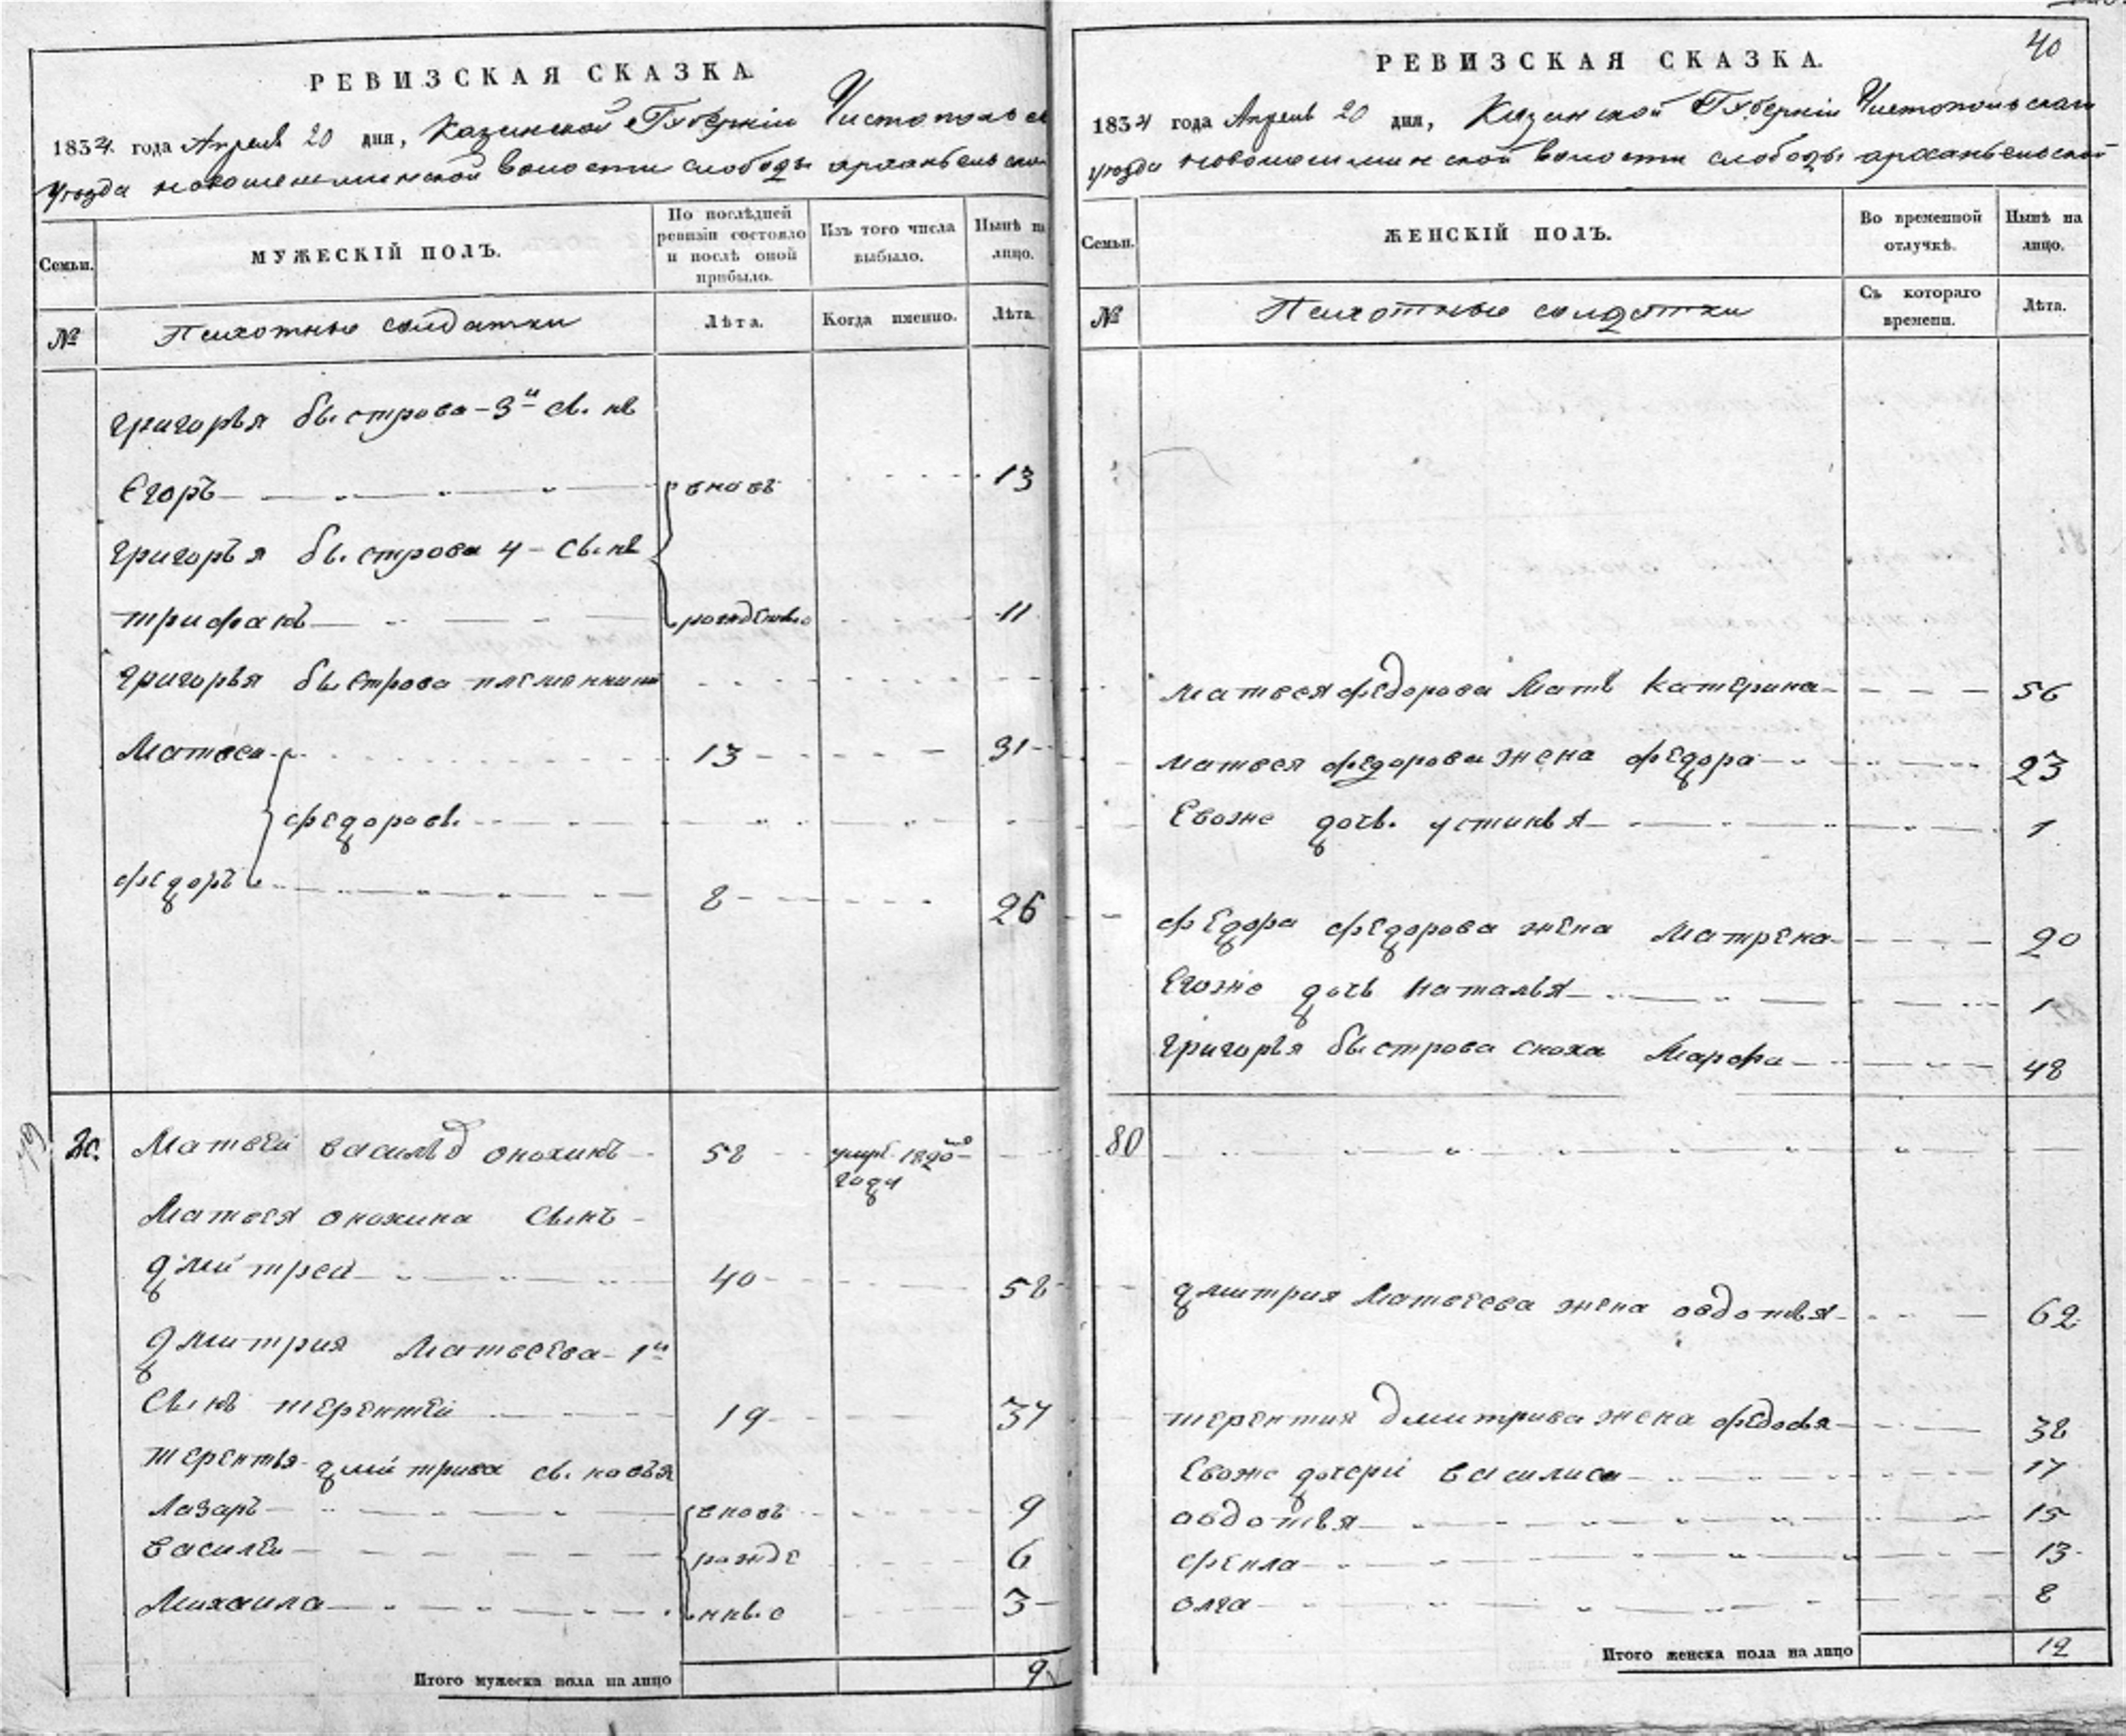 РЕВИЗСКАЯ СКАЗКА.
1834 года Апреля 20 дня, Казанской Губерніи Чистопольск
уѣзда новошешминской волости слободы арханьгельской
Семьи.
МУЖЕСКІЙ ПОЛЪ.
По послѣдней ревизіи состояло и послѣ оной прибыло.
Изъ того числа выбыло.
Нынѣ на лицо.
№
Пехотные солдатки
Лѣта.
Когда именно.
Лѣта.
григорья быстрова - 3й сынъ
Егоръ вновь 13
григорья быстрова 4 - сынъ
трифанъ рожденные 11
григорья быстрова племянники
Матвеи 13 31
федоровы
федоръ 8 26
79
20. Матвей васильд онохинъ 58 умръ 1820го года
Матвея онохина сынъ
дмитрей 40 58
дмитрия Матвеева - 1й
сынъ терентей 19 37
терентья дмитрива сыновья
Лазаръ вновь 9
василеи рожде 6
Михаила нные 3
Итого мужеска пола на лицо 9
40
РЕВИЗСКАЯ СКАЗКА.
1834 года Апреля 20 дня, Казанской Губерніи Чистопольскаго
уѣзда новошешминской волости слободы арханьгельской
Семьи.
ЖЕНСКІЙ ПОЛЪ.
Во временной отлучкѣ.
Нынѣ на лицо.
№
Пехотные солдатки
Съ котораго времени.
Лѣта.
матвея федорова мать катерина 56
матвея федорова жена федора 23
Евоже дочь устинья 1
федора федорова жена матрена 20
Евоже дочь наталья 1
григорья быстрова сноха марфа 48
80
дмитрия матвеева жена авдотья 62
терентия дмитрива жена федосья 38
Евоже дочери василиса 17
авдотья 15
фекла 13
олга 8
Итого женска пола на лицо 12